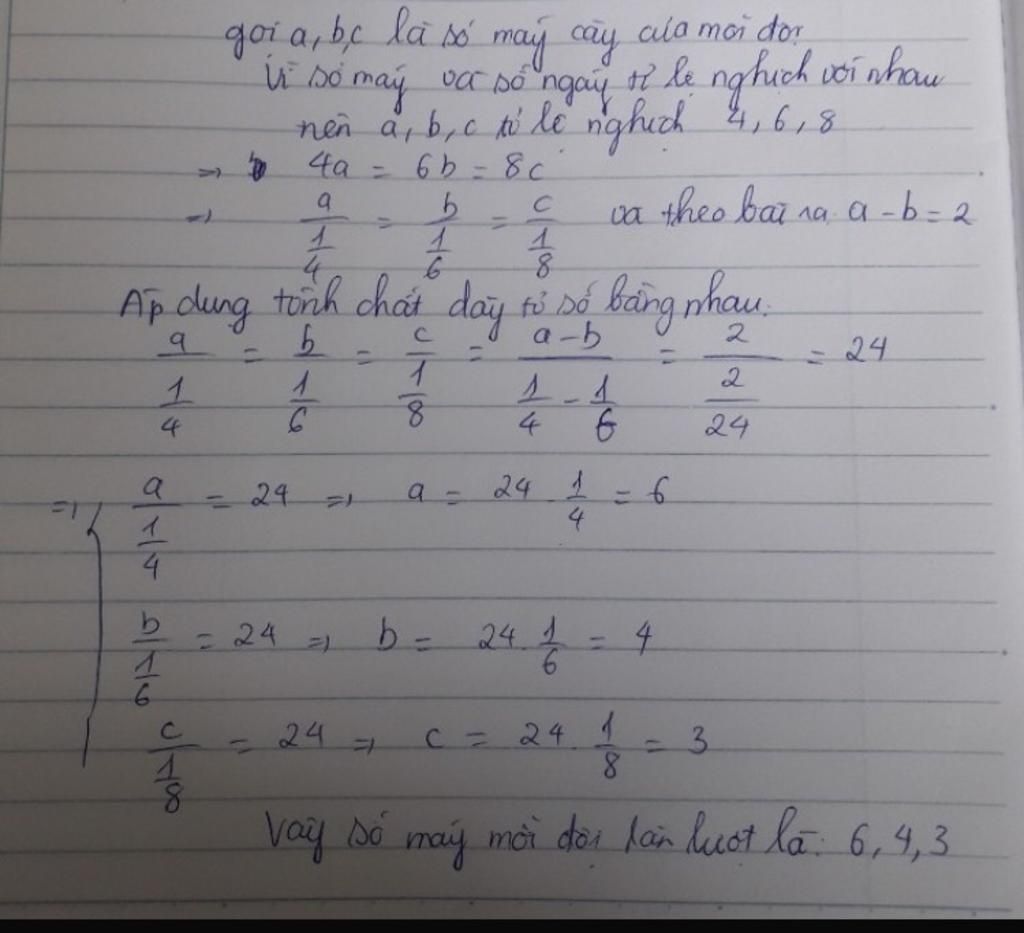 gọi a, b, c là số máy cày của mỗi đội
Vì số máy và số ngày tỉ lệ nghịch với nhau
nên a, b, c tỉ lệ nghịch 4, 6, 8
=> 4a = 6b = 8c
=> a/(1/4) = b/(1/6) = c/(1/8) và theo bài ra a - b = 2
Áp dụng tính chất dãy tỉ số bằng nhau.
a/(1/4) = b/(1/6) = c/(1/8) = (a - b)/(1/4 - 1/6) = 2/(2/24) = 24
=> { a/(1/4) = 24 => a = 24 . 1/4 = 6
b/(1/6) = 24 => b = 24 . 1/6 = 4
c/(1/8) = 24 => c = 24 . 1/8 = 3
Vậy số máy mỗi đội lần lượt là: 6, 4, 3